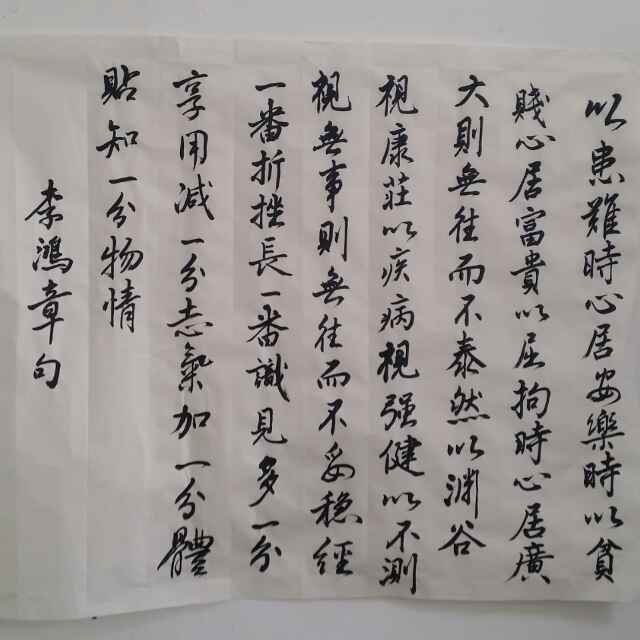 以患難時心居安樂時以貧
賤心居富貴以屈拘時心居廣
大則無往而不泰然以淵谷
視康莊以疾病視强健以不測
視無事則無往而不妥穩經
一番折挫長一番識見多一分
享用減一分志氣加一分體
貼知一分物情
李鴻章句